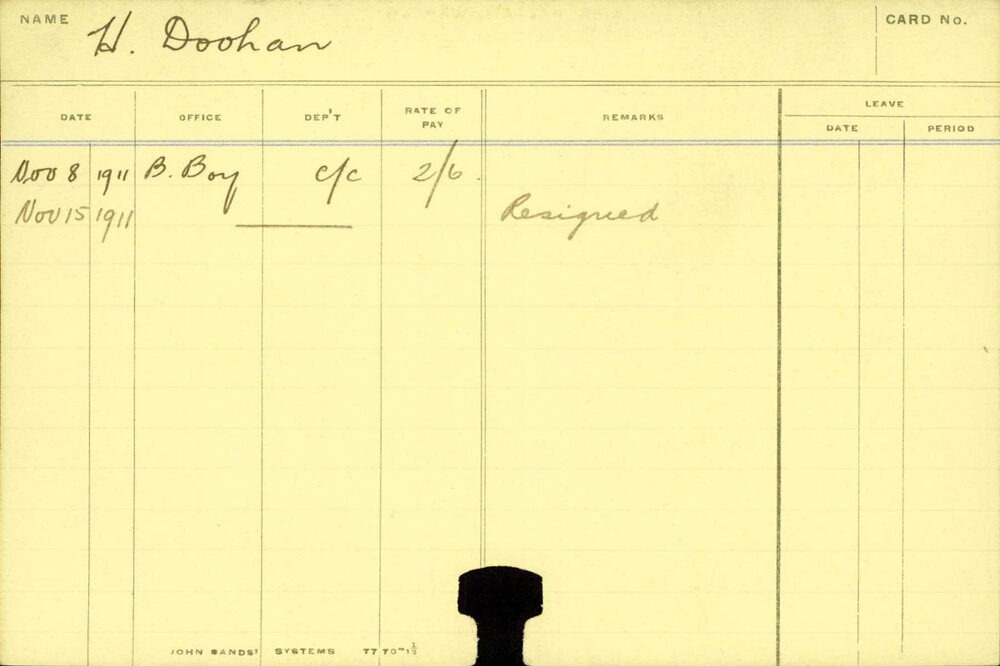 NAME H. Doohan CARD No.
LEAVE
DATE OFFICE DEP'T RATE OF PAY REMARKS DATE PERIOD
Nov 8 1911 B. Boy c/c 2/6.
Nov 15 1911 Resigned
JOHN SANDS' SYSTEMS